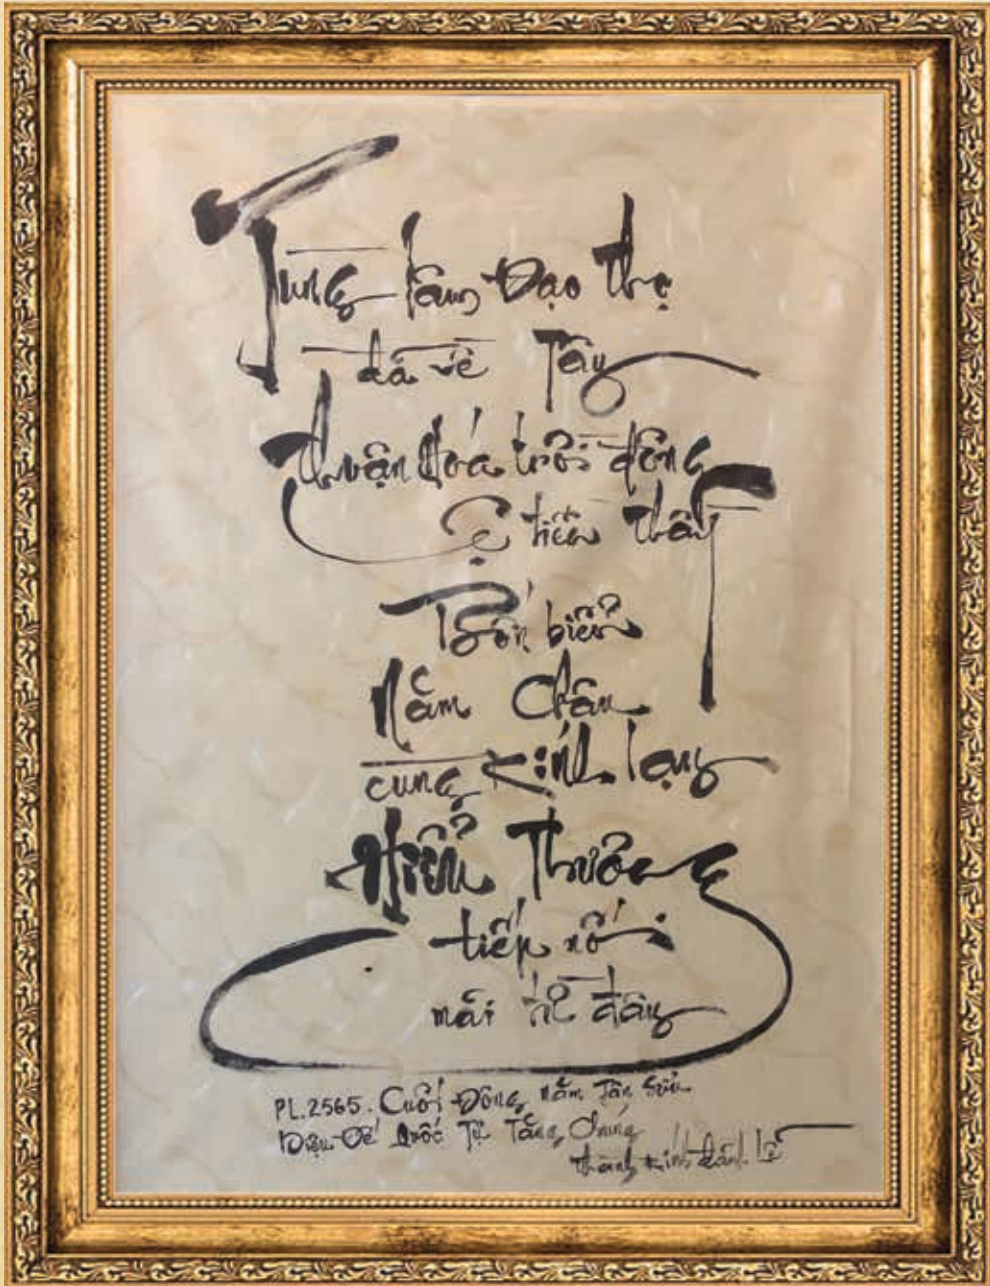 Tùng lâm Đạo thọ
đã về Tây
thuận hóa trời đông
Lệ tiễn thầy
Bốn biển
Năm Châu
cùng kính lạy
Hiểu Thương
tiếp nối
mãi từ đây
PL.2565. Cuối Đông năm Tân Sửu
Diệu Đế Quốc Tự Tăng Chúng
thành kính đảnh lễ